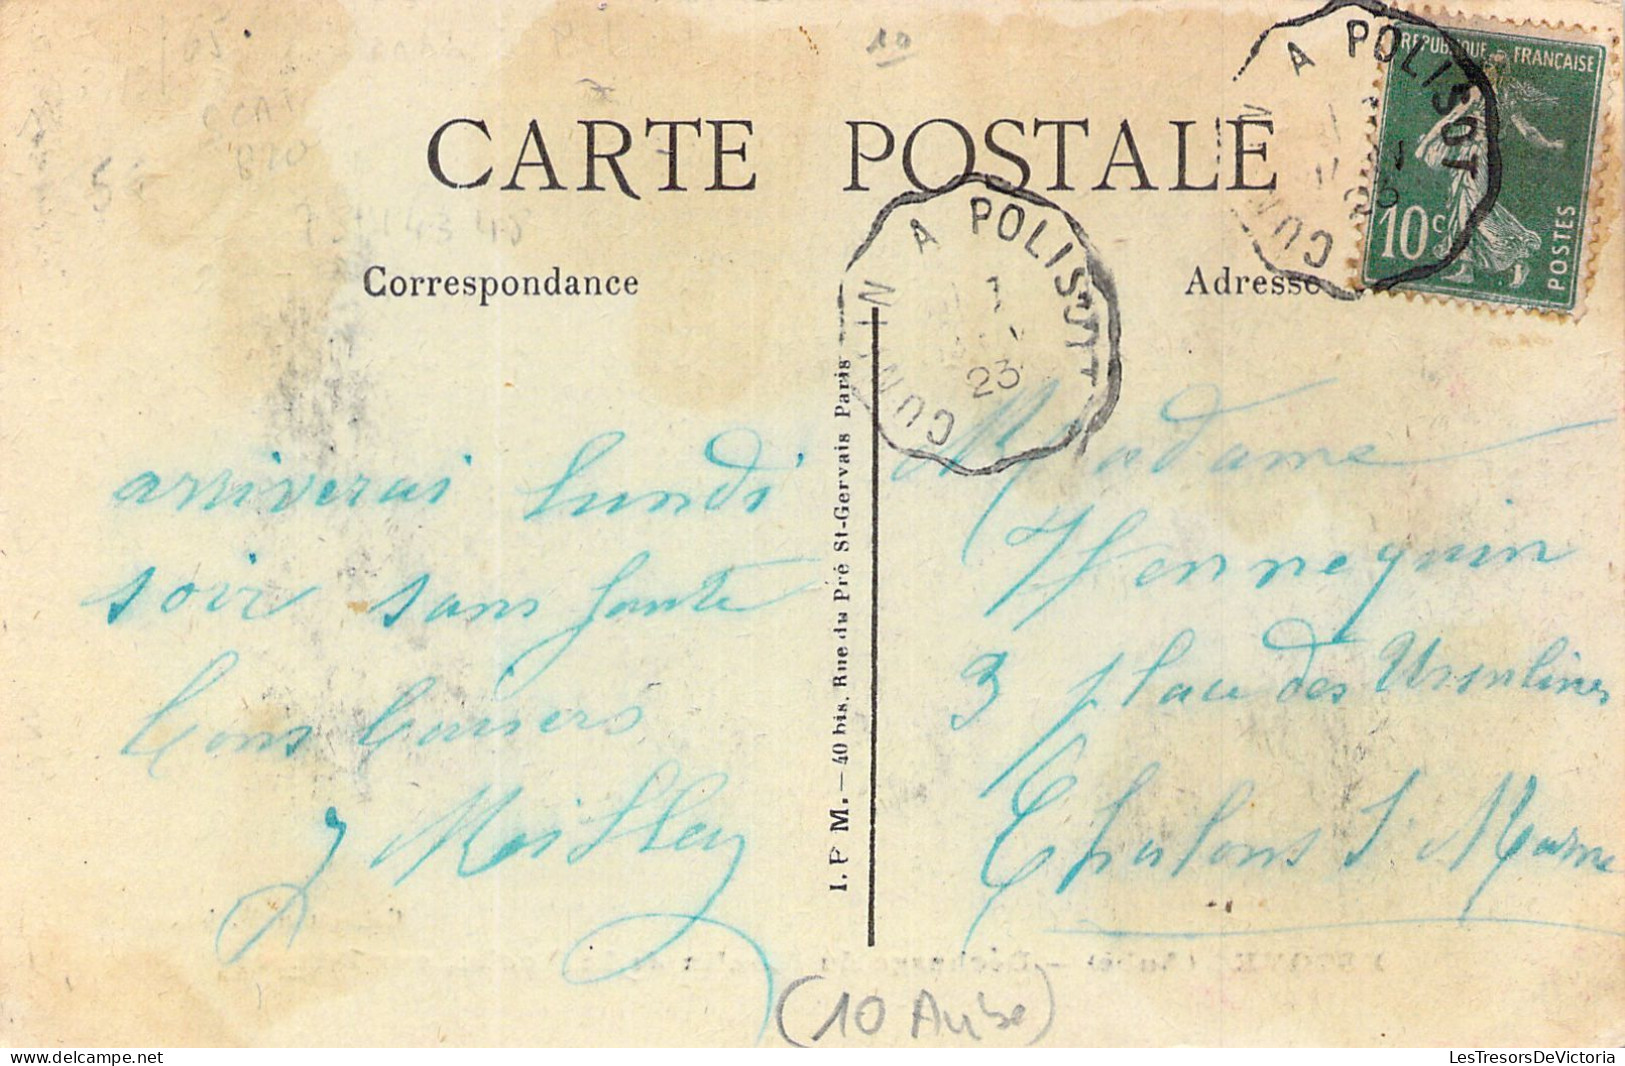 10
CARTE POSTALE
Correspondance
Adresse
REPUBLIQUE FRANÇAISE
10c
POSTES
CUNFIN A POLISOT
23
CUNFIN A POLISOT
23
arriverai lundi
soir sans faute
bons baisers
J Meilley
I. P M. — 40 bis, Rue du Pré St-Gervais Paris
Madame
Hennequin
3 place des Ursulines
Chalons S Marne
(10 Aube)
www.delcampe.net
LesTresorsDeVictoria